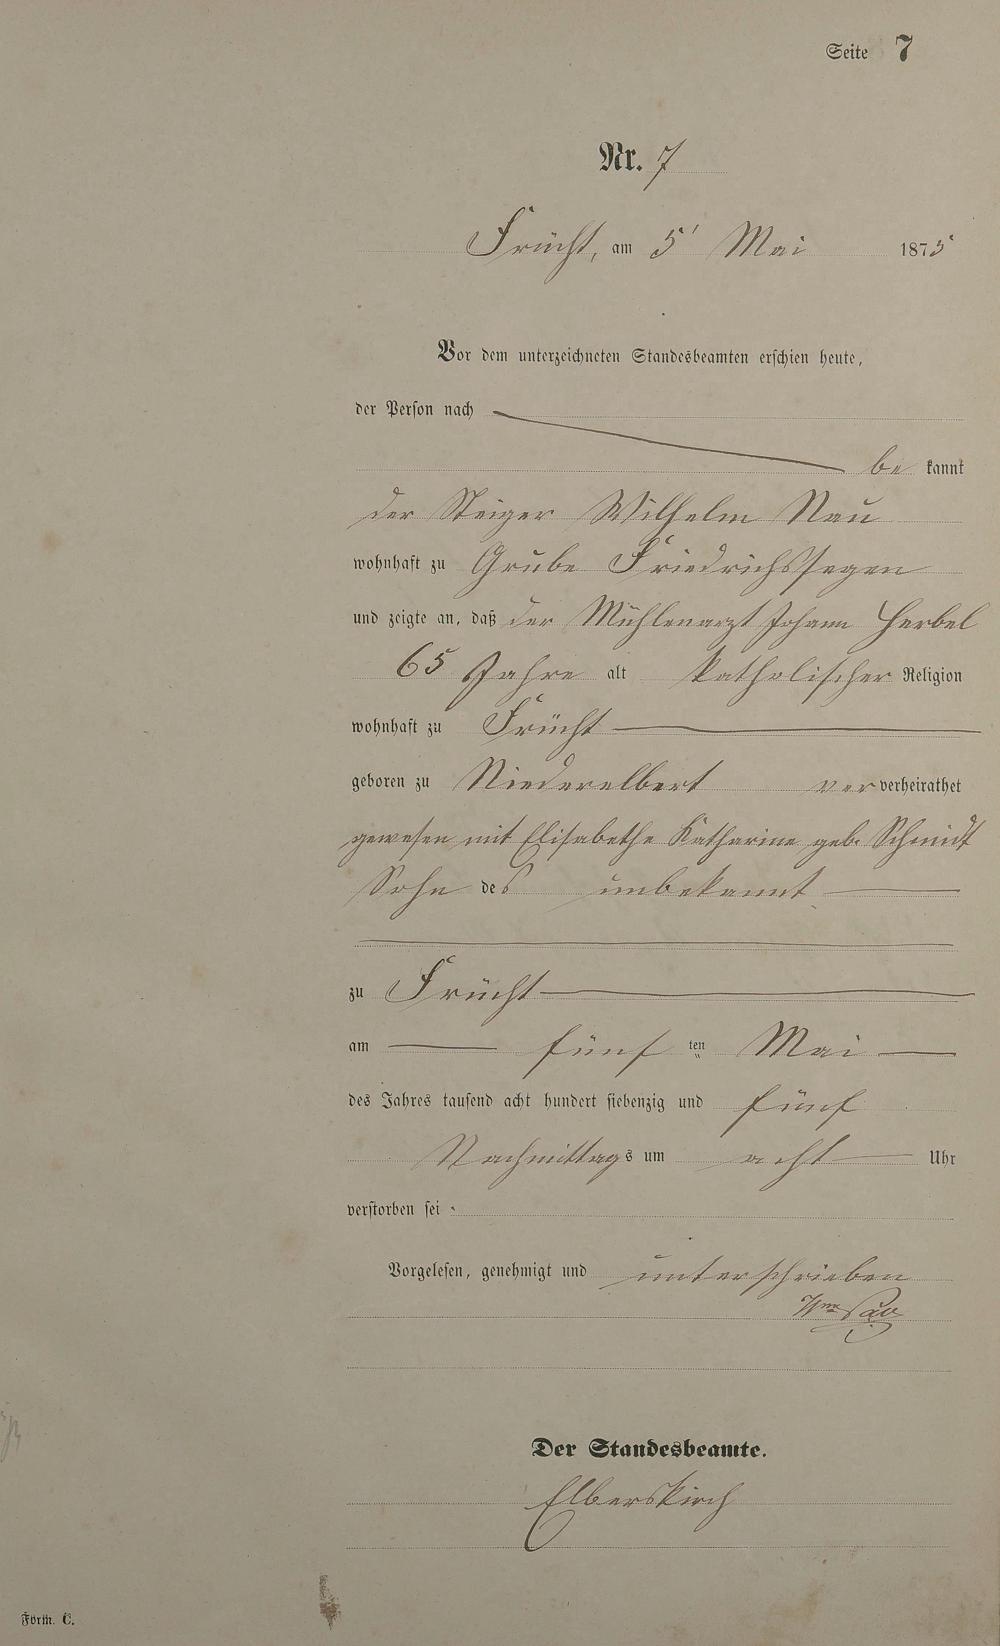 Seite 7
Nr. 7
Frücht, am 5' Mai 1875
Vor dem unterzeichneten Standesbeamten erschien heute,
der Person nach
be kannt
der Steiger Wilhelm Nau
wohnhaft zu Grube Friedrichssegen
und zeigte an, daß der Mühlenarzt Johann Herbel
65 Jahre alt katholischer Religion
wohnhaft zu Frücht
geboren zu Niederelbert ver verheirathet
gewesen mit Elisabethe Katharine geb. Schmidt
Sohn des unbekannt
zu Frücht
am fünf ten Mai
des Jahres tausend acht hundert siebenzig und fünf
Nachmittags um acht Uhr
verstorben sei.
Vorgelesen, genehmigt und unterschrieben
Nau
Der Standesbeamte.
Elberskirch
Form. C.